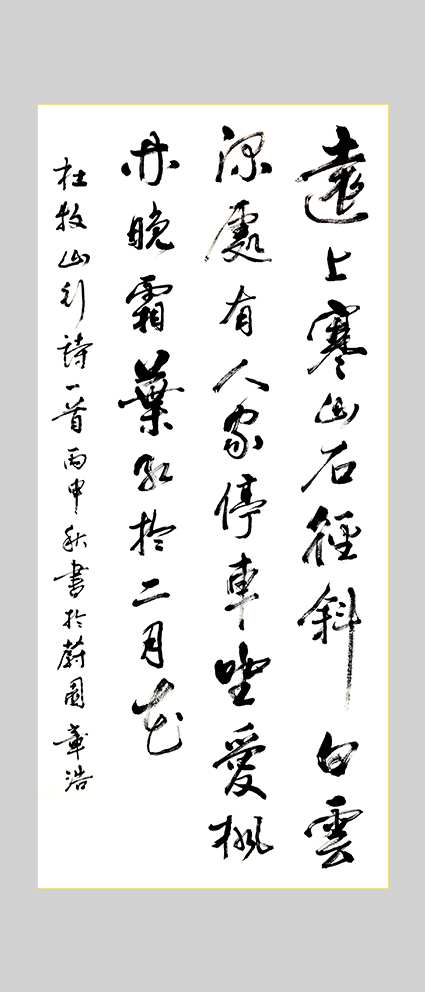 遠上寒山石徑斜白雲
深處有人家停車坐愛楓
林晚霜葉紅於二月花
杜牧山行詩一首丙申秋書於蔚園章浩